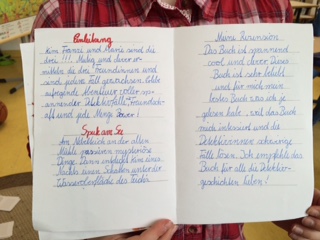 Einleitung
Kim, Franzi und Marie sind die
drei !!! Mutig und clever er-
mitteln die drei Freundinnen und
sind jedem Fall gewachsen. Echte
aufregende Abenteuer voller sp-
annender Detektivfälle, Freundscha
ft und jede Menge Power!
Spuk am See
Am Nebelbach an der alten
Mühle passieren mysteriöse
Dinge. Dann entdeckt Kim eines
Nachts einen Schatten unter der
Wasseroberfläche des
Meine Rezension
Das Buch ist spannend
cool und clever. Dieses
Buch ist sehr beliebt
und für mich mein
bestes Buch das ich je
gelesen habe, weil das Buch
mich interessirt und die
Detektivinnen schwierige
Fälle lösen. Ich empfehle das
Buch für alle die Detektiv-
geschichten lieben!